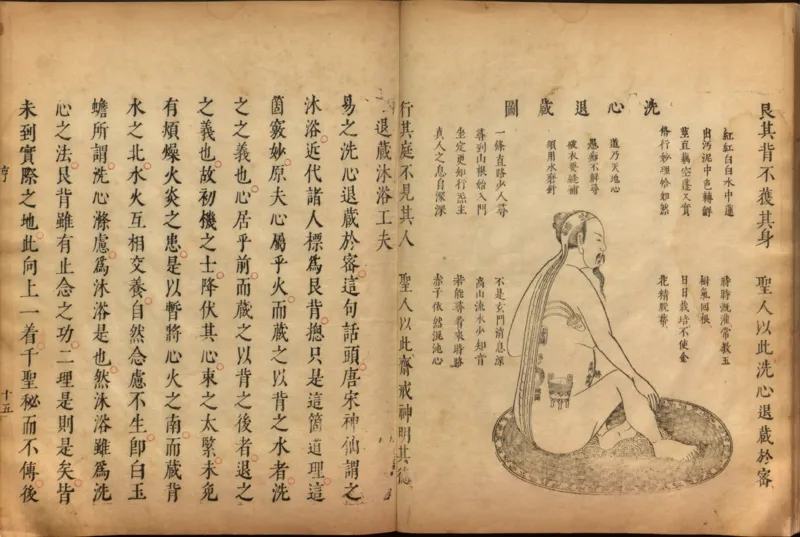 艮其背不獲其身 聖人以此洗心退藏於密
洗心退藏圖
紅紅白白水中蓮
出污泥中色轉鮮
莖直藕空蓬又實
修行妙理恰如然
時時溉灌常教玉
樹氣回根
日日栽培不使金
花精脫蔕
道乃天地心
愚痴不解尋
破衣要縫補
須用水磨針
一條直路少人尋
尋到山根始入門
坐定更知行炁主
真人之息自深深
不是玄門消息深
高山流水少知音
若能尋着來時路
赤子依然混沌心
行其庭不見其人 聖人以此齋戒神明其德
退藏沐浴工夫
易之洗心退藏於密這句話頭唐宋神仙謂之
沐浴近代諸人標爲艮背摠只是這箇道理這
箇竅妙原夫心屬乎火而藏之以背之水者洗
之之義也心居乎前而藏之以背之後者退之
之義也故初機之士降伏其心束之太緊未免
有煩燥火炎之患是以暫將心火之南而藏背
水之北水火互相交養自然念慮不生即白玉
蟾所謂洗心滌慮爲沐浴是也然沐浴雖爲洗
心之法艮背雖有止念之功二理是則是矣皆
未到實際之地此向上一着千聖秘而不傳後
亨
十五